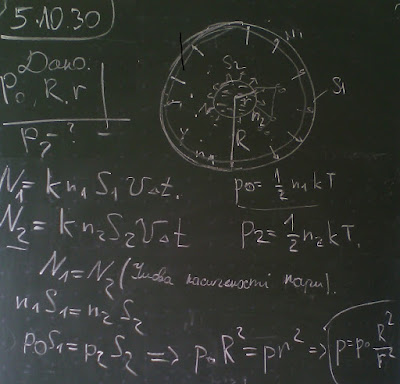 5.10.30
Дано:
p₀, R, r
p₂ - ?
S₂
S₁
n₂
R
n₁
N₁ = k n₁ S₁ V Δt.
p₀ = ½ n₁ kT
N₂ = k n₂ S₂ V Δt
p₂ = ½ n₂ kT.
N₁ = N₂ (Умова насиченості пари).
n₁ S₁ = n₂ S₂
p₀ S₁ = p₂ S₂ => p₀ R² = p r² => p = p₀ R²/r²